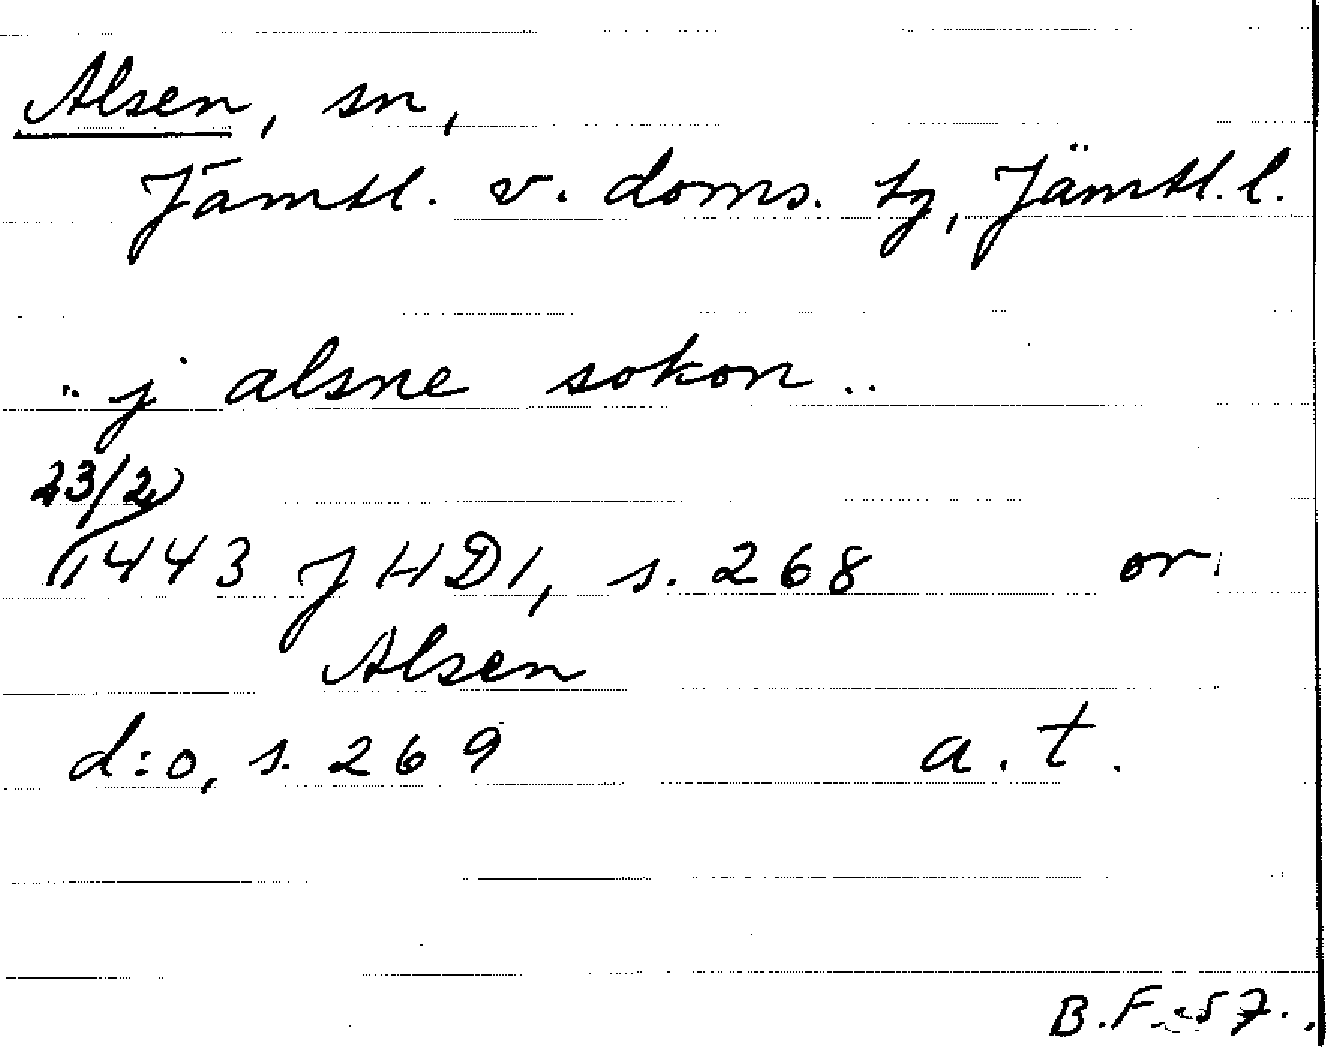 Alsen, sn,
Jämtl. v. doms. tg, Jämtl. l.
.. j alsne sokon ..
23/2
1443 JHD1, s. 268 or.
Alsen
d:o, s. 269 a. t.
B.F. 57.